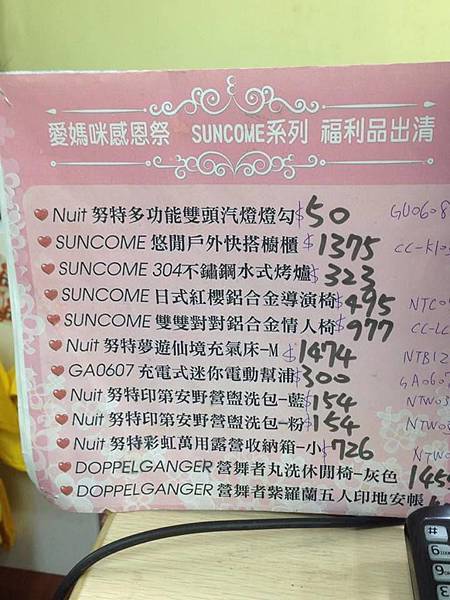 愛媽咪感恩祭 SUNCOME系列 福利品出清
Nuit 努特多功能雙頭汽燈燈勾 $50 GU0608
SUNCOME 悠閒戶外快搭櫥櫃 $1375
SUNCOME 304不鏽鋼水式烤爐 $323
SUNCOME 日式紅櫻鋁合金導演椅 $495
SUNCOME 雙雙對對鋁合金情人椅 $977
Nuit 努特夢遊仙境充氣床-M $1474 NTB12
GA0607 充電式迷你電動幫浦 $300 GA0607
Nuit 努特印第安野營盥洗包-藍 $154
Nuit 努特印第安野營盥洗包-粉 $154
Nuit 努特彩虹萬用露營收納箱-小 $726
DOPPELGANGER 營舞者丸洗休閒椅-灰色
DOPPELGANGER 營舞者紫羅蘭五人印地安帳